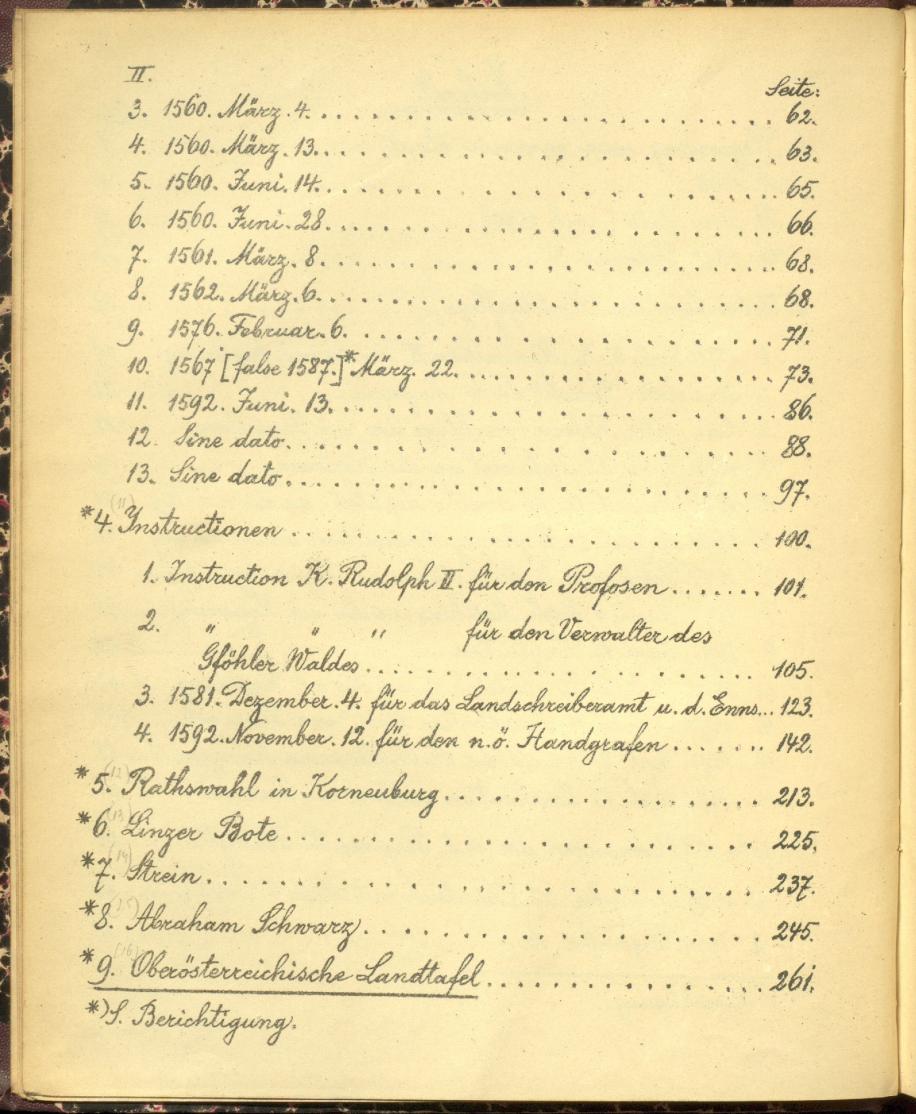 II.
Seite:
3. 1560. März. 4. .......... 62.
4. 1560. März. 13. .......... 63.
5. 1560. Juni. 14. .......... 65.
6. 1560. Juni. 28. .......... 66.
7. 1561. März. 8. .......... 68.
8. 1562. März. 6. .......... 68.
9. 1576. Februar. 6. .......... 71.
10. 1567 [false 1587.]* März. 22. .......... 73.
11. 1592. Juni. 13. .......... 86.
12. Sine dato. .......... 88.
13. Sine dato. .......... 97.
(11)
*4. Instructionen .......... 100.
1. Instruction K. Rudolph II. für den Profosen ....... 101.
2. " " " für den Verwalter des
Gföhler Waldes .......... 105.
3. 1581. Dezember. 4. für das Landschreiberamt u. d. Enns... 123.
4. 1592. November. 12. für den n.ö. Handgrafen ...... 142.
(12)
*5. Rathswahl in Korneuburg .......... 213.
(13)
*6. Linzer Bote .......... 225.
(14)
*7. Strein .......... 237.
(15)
*8. Abraham Schwarz .......... 245.
(16)
*9. Oberösterreichische Landtafel .......... 261.
*) S. Berichtigung.